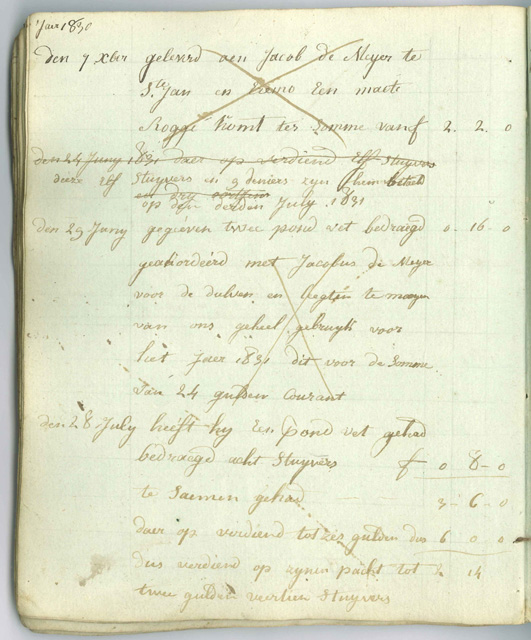 Jaer 1830
den 7 Xber gelevert aen Jacob de Meyer te
Ste Jan en Eremo Een maete
Rogge komt ter somme van f 2. 2. 0
den 24 Juny 1831 daer op verdiend Elf Stuyvers
deeze Elf Stuyvers en 9 deniers zyn hem betaelt
op den derden July 1831
den 29 Juny gegeeven twee pond vet bedraegd 0 - 16 - 0
geackordeerd met Jacobus de Meyer
voor de dulven en leegten te maeyen
van ons geheel gebruyk voor
het jaer 1831 dit voor de somme
van 24 gulden Courant
den 28 July heeft hy Een pond vet gehad
bedraegd acht Stuyvers f 0 8 - 0
te saemen gehad 3 - 6 - 0
daer op verdiend tot zes gulden dus 6 0 0
dus verdiend op zynen pacht tot 2 14
twee gulden veertien Stuyvers